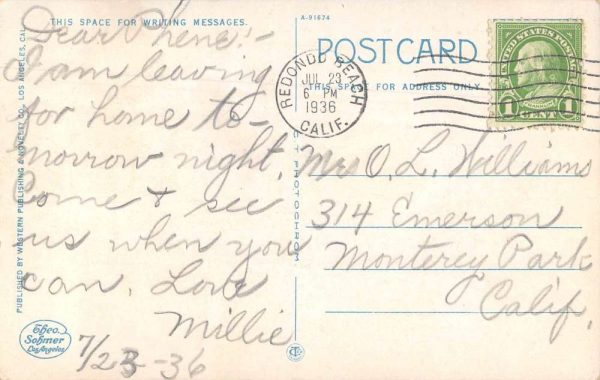 THIS SPACE FOR WRITING MESSAGES.
Dear Phene:-
I am leaving
for home to-
morrow night.
Come & see
us when you
can. Love
Millie
7/23-36
PUBLISHED BY WESTERN PUBLISHING & NOVELTY CO., LOS ANGELES, CAL.
Theo.
Sohmer
Los Angeles
A-91674
POST CARD
THIS SPACE FOR ADDRESS ONLY
REDONDO BEACH
JUL 23
6 PM
1936
CALIF.
UNITED STATES POSTAGE
1 CENT 1
Mrs O. L. Williams
314 Emerson
Monterey Park
Calif.